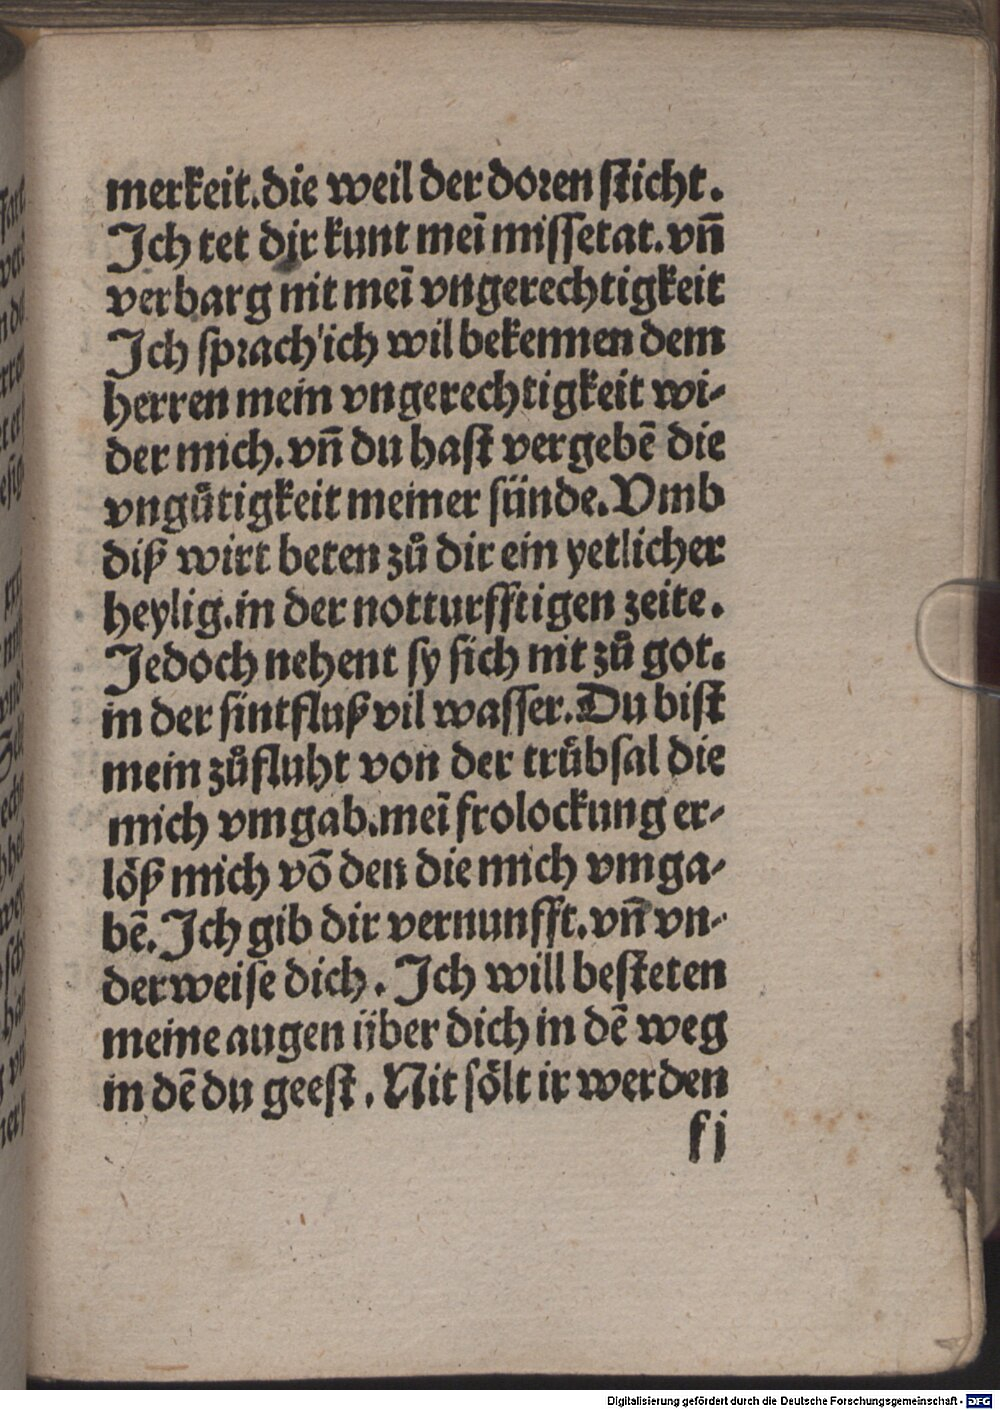 merkeit.die weil der doren sticht.
Ich tet dir kunt meī missetat.vñ
verbarg nit meī vngerechtigkeit
Ich sprach ich wil bekennen dem
herren mein vngerechtigkeit wi-
der mich.vñ du hast vergebē die
vngůtigkeit meiner sünde.Vmb
diß wirt beten zů dir ein yetlicher
heylig.in der notturfftigen zeite.
Jedoch nehent sy sich nit zů got.
in der sintfluß vil wasser.Du bist
mein zůfluht von der trůbsal die
mich vmgab.meī frolockung er-
löß mich vō den die mich vmga-
bē.Ich gib dir vernunfft.vñ vn-
derweise dich. Ich will besteten
meine augen über dich in dē weg
in dē du geest. Nit sölt ir werden
f i
Digitalisierung gefördert durch die Deutsche Forschungsgemeinschaft - DFG